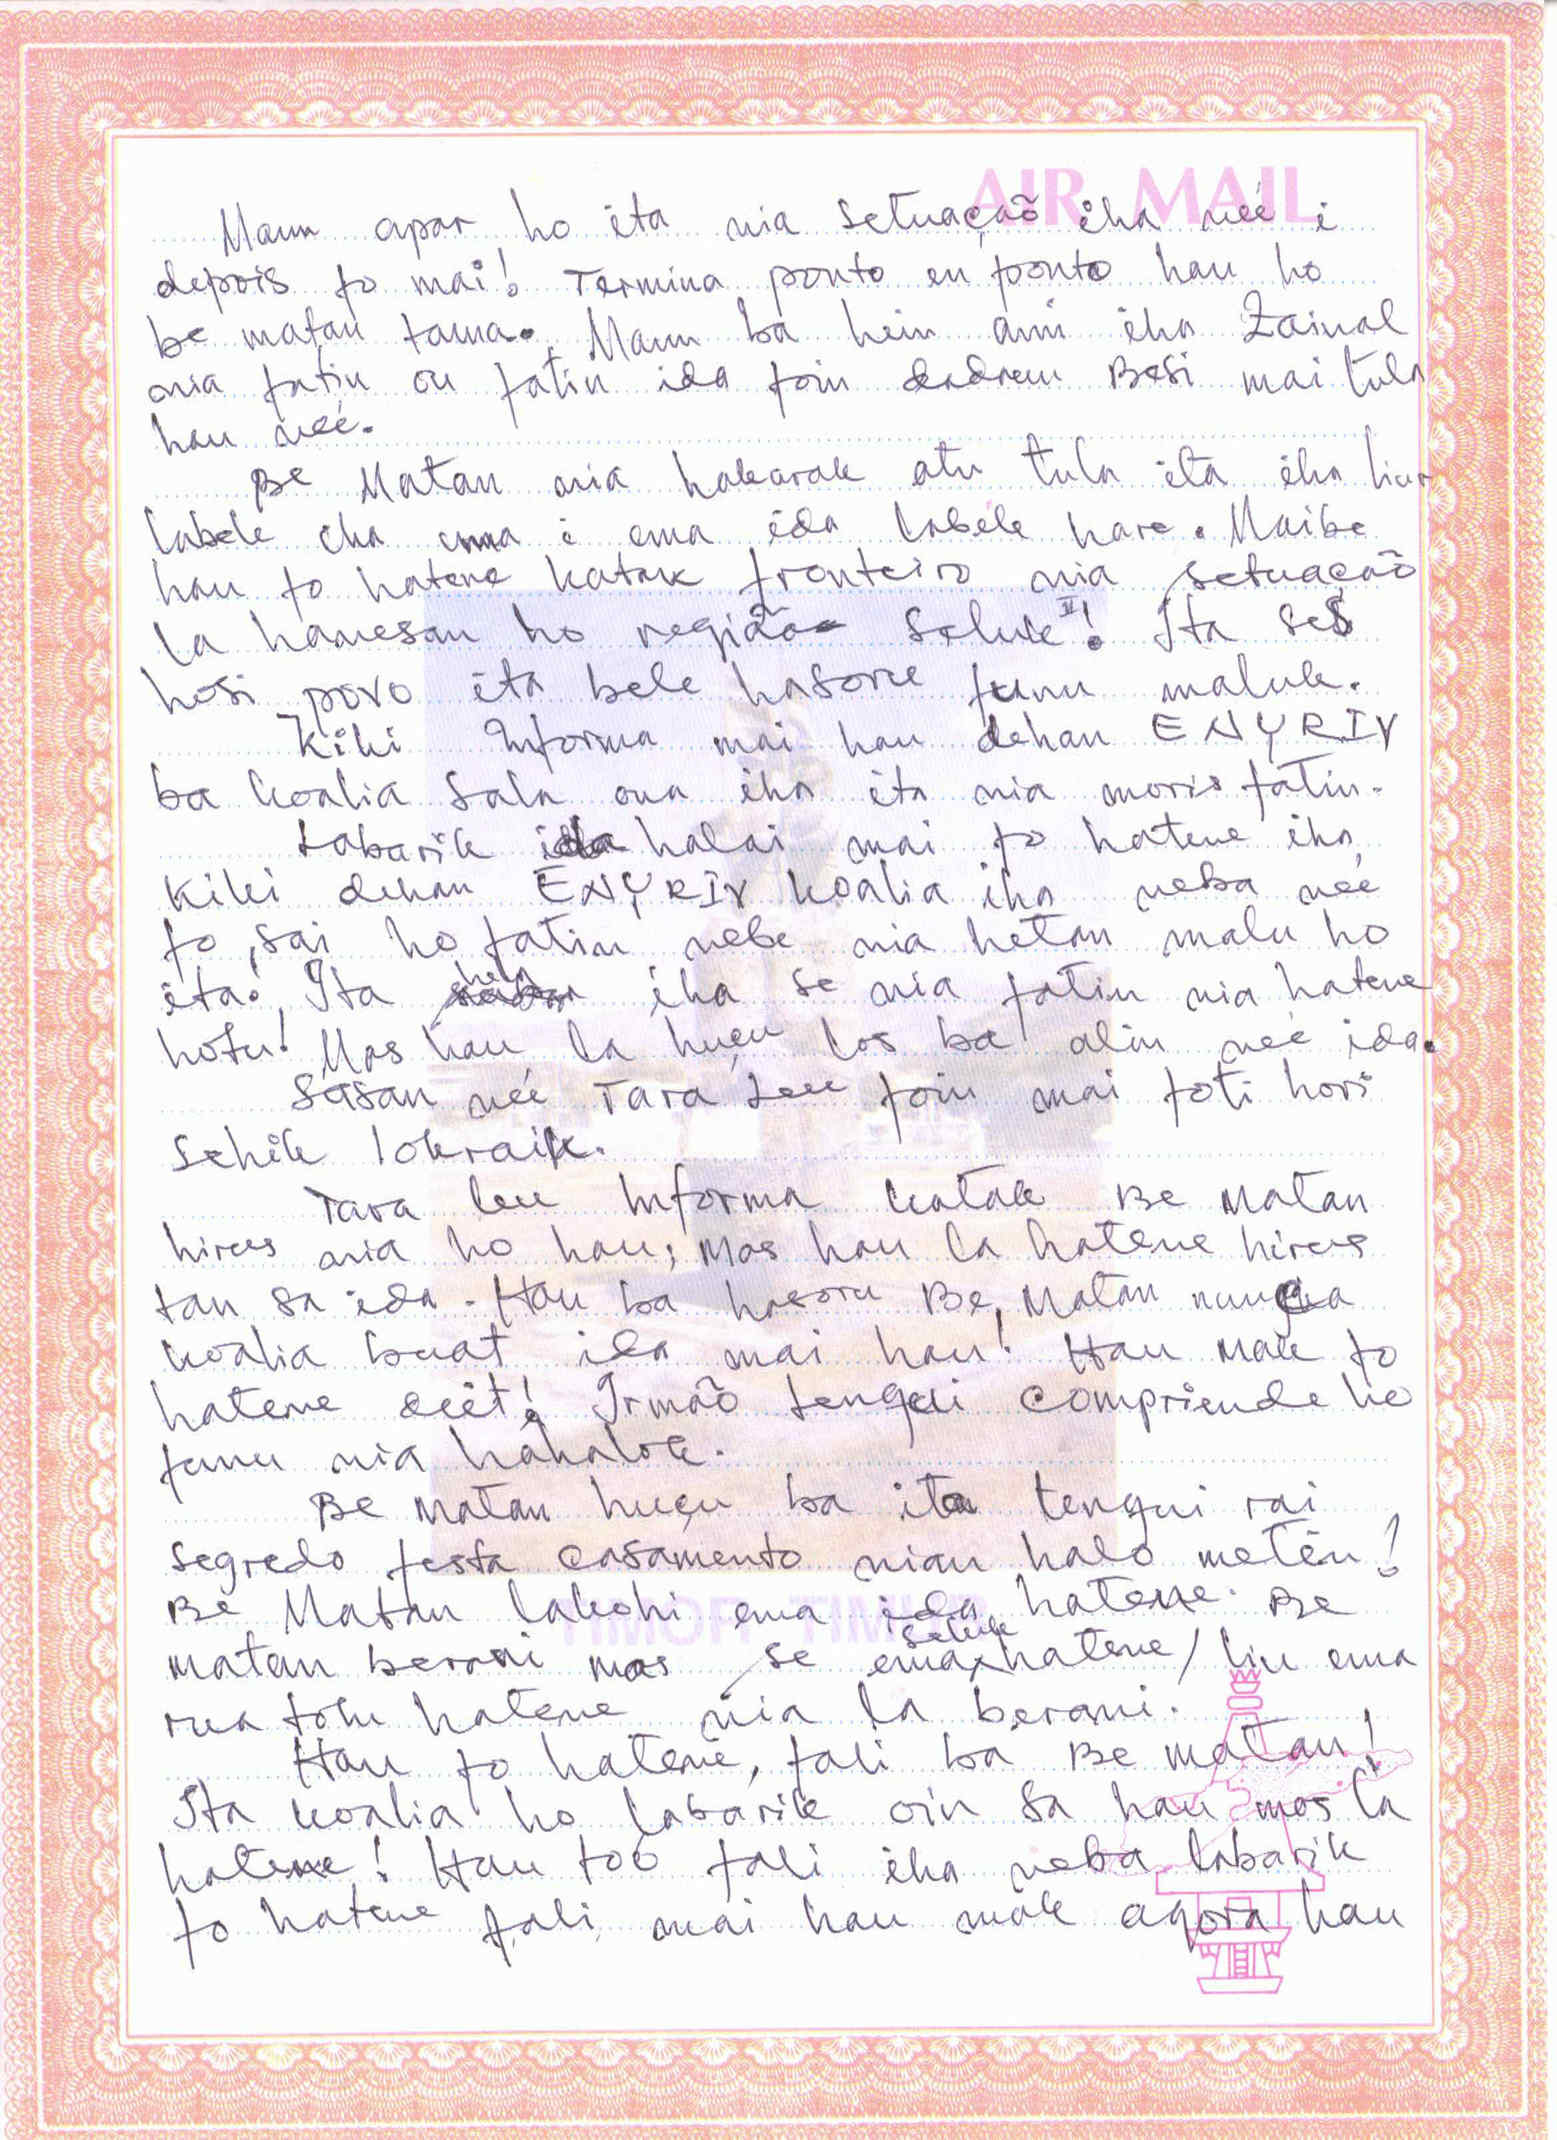 AIR MAIL
Maun apar ho ita nia setuação iha neé i
depois fo mai! Termina ponto en ponto hau ho
be matan tama. Maun ba hein ami iha Zainal
nia fatin ou fatin ida foin dadreu Besi mai tula
hau neé.
Be Matan nia hakarak atu tula ita iha liur
labele iha uma i ema ida labele hare. Maibe
hau fo hatene katak fronteiro nia setuação
la hanesan ho região seluk II! Ita ses
hosi povo ita bele hasoru funu maluk.
Kiki Informa mai hau dehan ENYRIV
ba koalia sala ona iha ita nia moris fatin.
Labarik ida halai mai fo hatene iha
Kiki dehan ENYRIV koalia iha neba neé
fo sai ho fatin nebe nia hetan malu ho
ita! Ita hela iha se nia fatin nia hatene
hotu! Mas hau la huçu los ba alin neé ida.
Sasan neé Tara Leu foin mai foti hori
sehik lokraik.
Tara leu Informa katak Be Matan
hirus nia ho hau; Mas hau la hatene hirus
tan sa ida. Hau ba hasoru Be Matan nunca
koalia buat ida mai hau! Hau mak fo
hatene deit! Irmão tengui compriende ho
funu nia hahalok.
Be Matan huçu ba ita tengui rai
segredo festa casamento nian halo metin!
Be Matan lakohi ema ida hatene. Be
matan berani mas se ema seluk hatene / liu ema
rua tolu hatene nia la berani.
Hau fo hatene, fali ba Be matan!
Ita koalia ho labarik oin sa hau mos la
hatene! Hau too fali iha neba labarik
fo hatene fali mai hau mak agora hau
TIMOR TIMUR